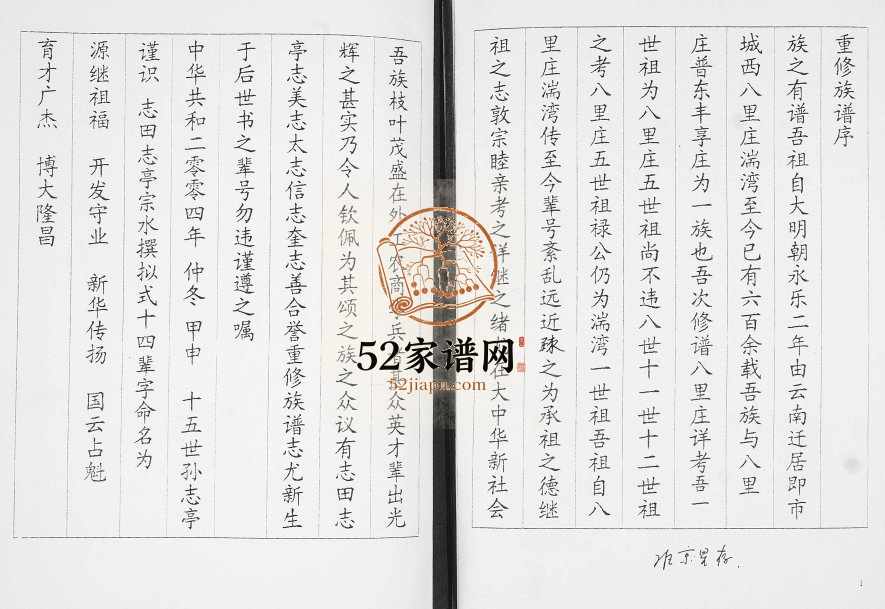 重修族谱序
族之有谱吾祖自大明朝永乐二年由云南迁居即市
城西八里庄湍湾至今已有六百余载吾族与八里
庄普东丰享庄为一族也吾次修谱八里庄详考吾一
世祖为八里庄五世祖尚不违八世十一世十二世祖
之考八里庄五世祖禄公仍为湍湾一世祖吾祖自八
里庄湍湾传至今辈号紊乱远近疎之为承祖之德继
祖之志敦宗睦亲考之详继之绪在大中华新社会
吾族枝叶茂盛在外工农商兵众英才辈出光
辉之甚实乃令人钦佩为其颂之族之众议有志田志
亭志美志太志信志奎志善合誉重修族谱志尤新生
于后世书之辈号勿违谨遵之嘱
中华共和二零零四年 仲冬 甲申 十五世孙志亭
谨识 志田志亭宗水撰拟式十四辈字命名为
源继祖福 开发守业 新华传扬 国云占魁
育才广杰 博大隆昌
52家谱网
52jiapu.com